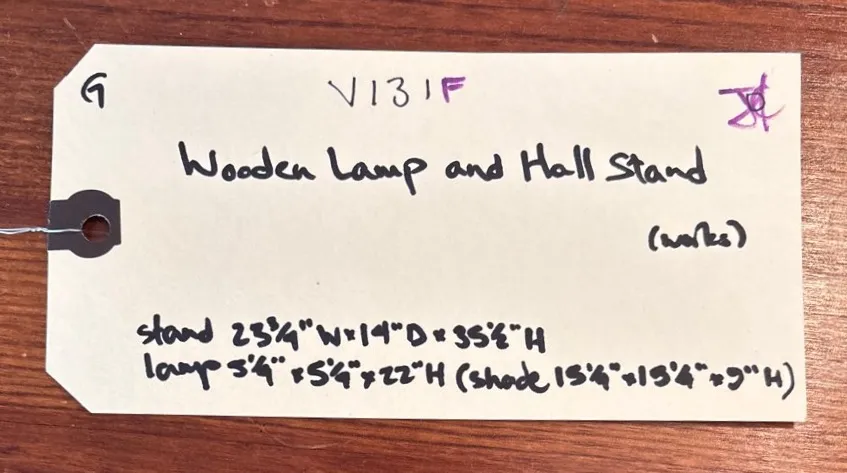 G
V131F
Wooden Lamp and Hall Stand
(works)
stand 23¾" W × 14" D × 35½" H
lamp 5¼" × 5¼" × 22" H (shade 15¼" × 15¼" × 9" H)